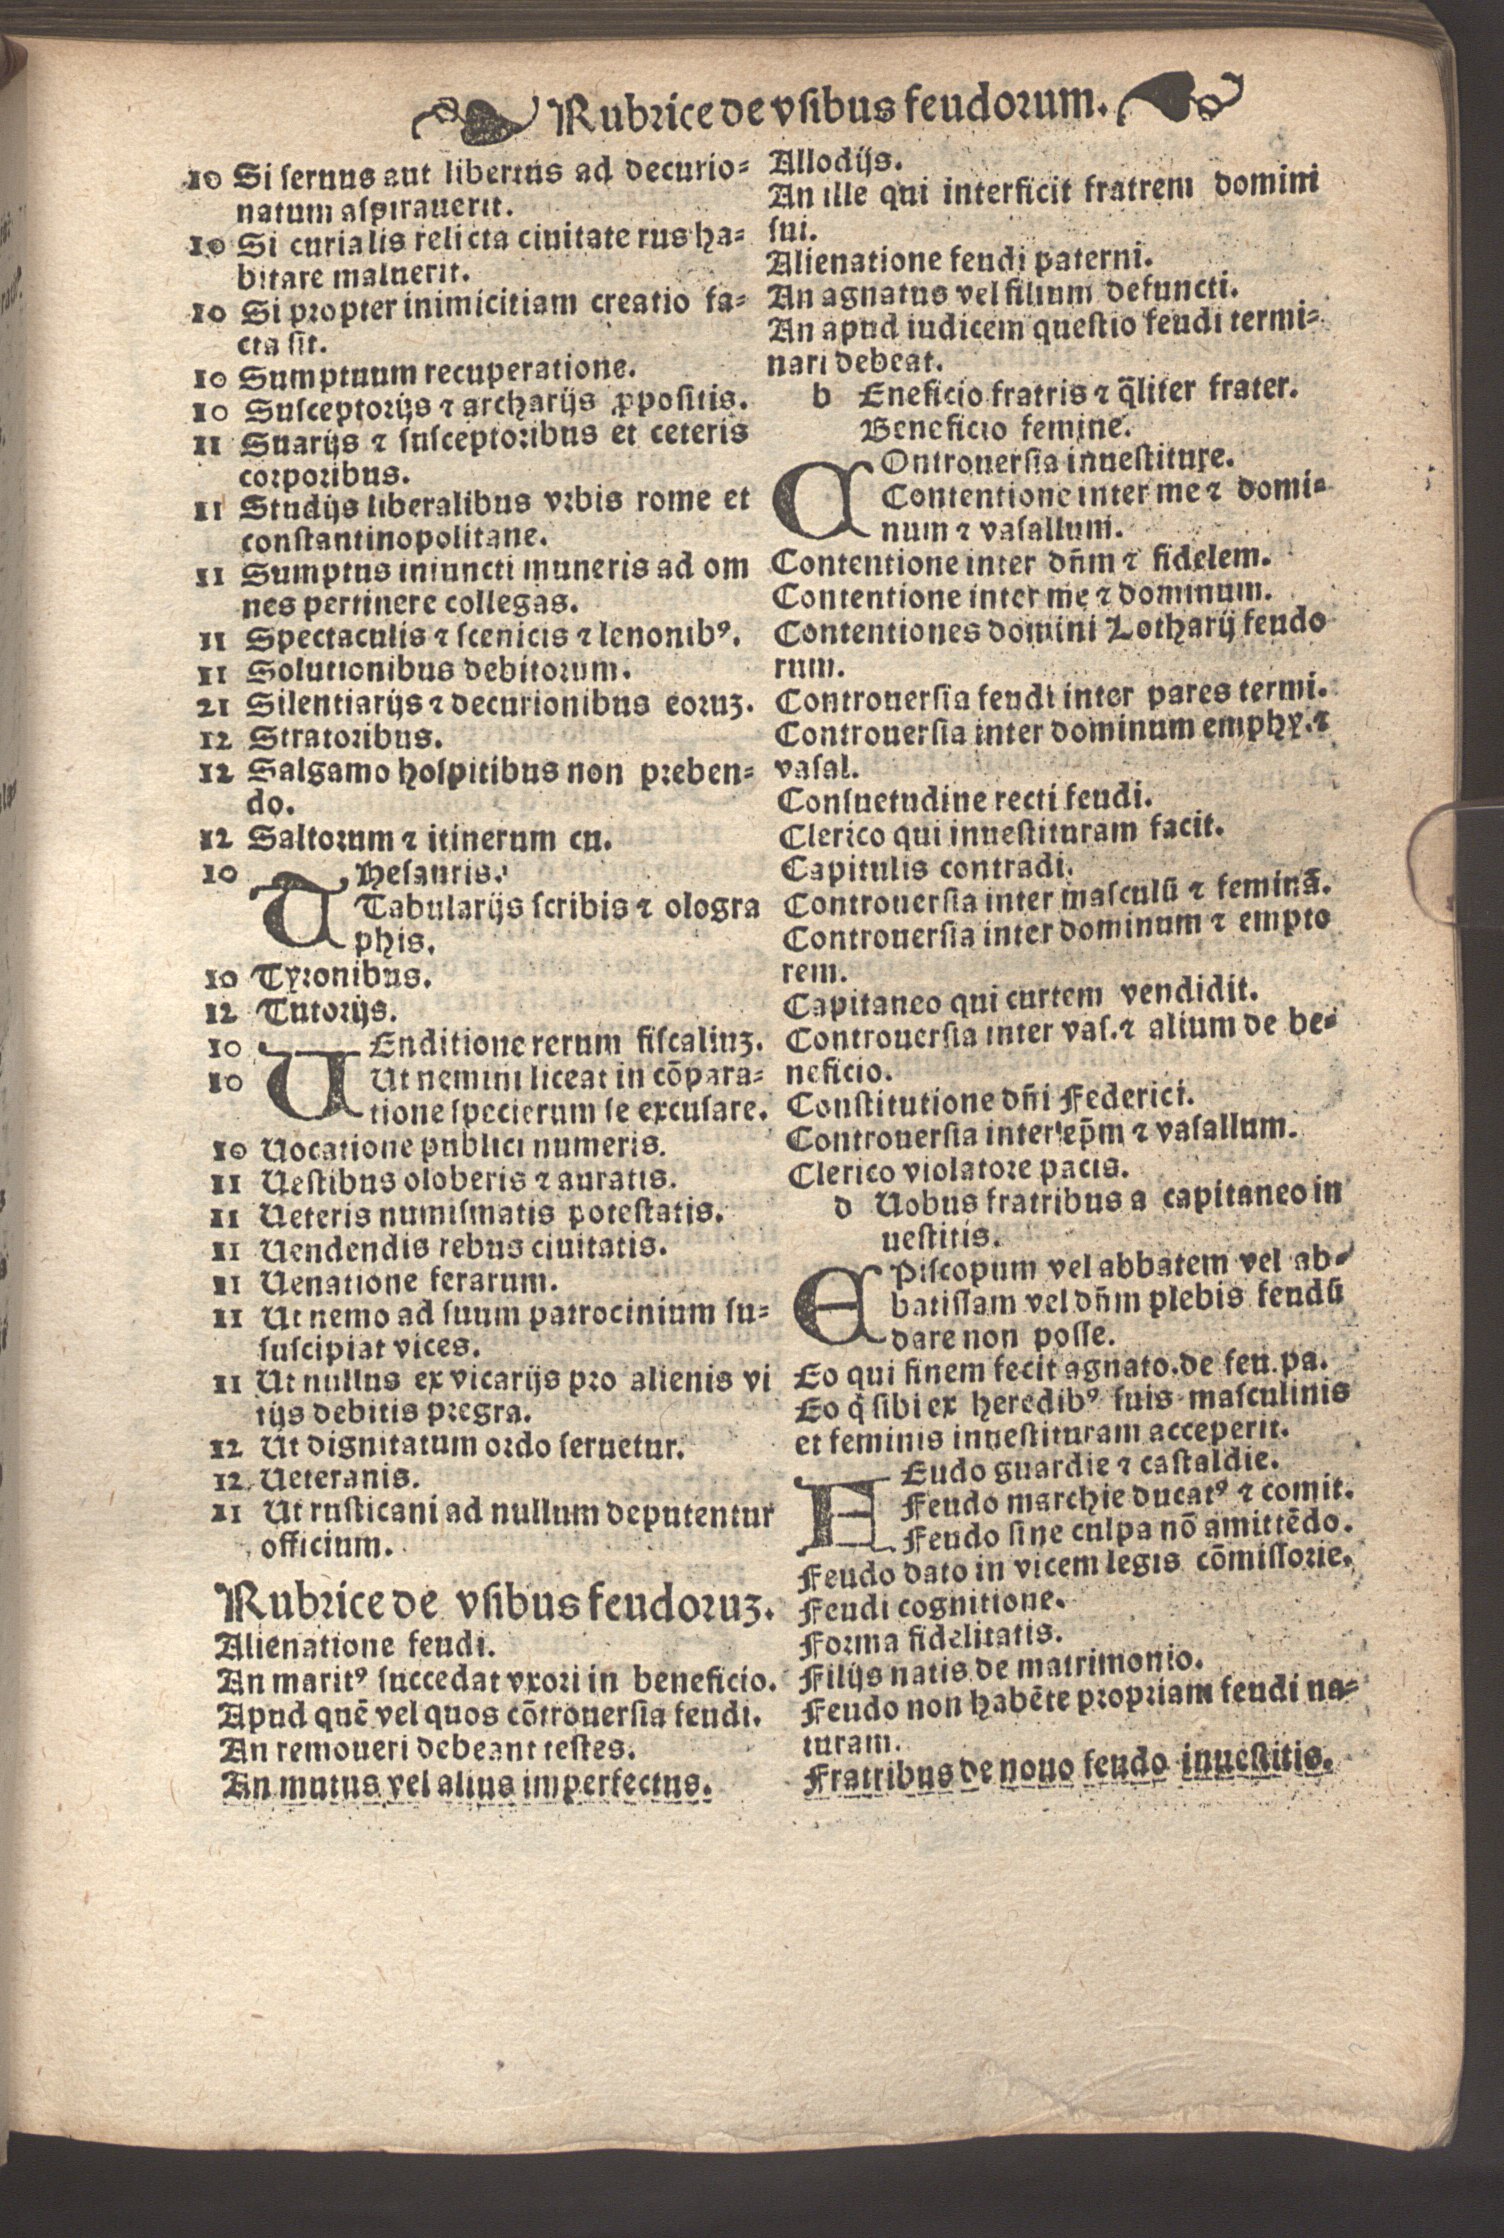 Rubrice de vsibus feudorum.
10 Si seruus aut libertus ad decurio=
natum aspirauerit.
10 Si curialis relicta ciuitate rus ha=
bitare maluerit.
10 Si propter inimicitiam creatio fa=
cta sit.
10 Sumptuum recuperatione.
10 Susceptorijs ⁊ archarijs ꝓpositis.
11 Suarijs ⁊ susceptoribus et ceteris
corporibus.
11 Studijs liberalibus vrbis rome et
constantinopolitane.
11 Sumptus iniuncti muneris ad om
nes pertinere collegas.
11 Spectaculis ⁊ scenicis ⁊ lenonibꝰ.
11 Solutionibus debitorum.
21 Silentiarijs ⁊ decurionibus eoruꝫ.
12 Stratoribus.
12 Salgamo hospitibus non preben=
do.
12 Saltorum ⁊ itinerum cu.
10 Thesauris.
Tabularijs scribis ⁊ ologra
phis.
10 Tyronibus.
12 Tutorijs.
10 UEnditione rerum fiscaliuꝫ.
10 Ut nemini liceat in cõpara=
tione specierum se excusare.
10 Uocatione publici numeris.
11 Uestibus oloberis ⁊ auratis.
11 Ueteris numismatis potestatis.
11 Uendendis rebus ciuitatis.
11 Uenatione ferarum.
11 Ut nemo ad suum patrocinium su=
suscipiat vices.
11 Ut nullus ex vicarijs pro alienis vi
tijs debitis pregra.
12 Ut dignitatum ordo seruetur.
12 Ueteranis.
11 Ut rusticani ad nullum deputentur
officium.
Rubrice de vsibus feudoruꝫ.
Alienatione feudi.
An maritꝰ succedat vxori in beneficio.
Apud quē vel quos cõtrouersia feudi.
An remoueri debeant testes.
An mutus vel alius imperfectus.
Allodijs.
An ille qui interficit fratrem domini
sui.
Alienatione feudi paterni.
An agnatus vel filium defuncti.
An apud iudicem questio feudi termi=
nari debeat.
b Eneficio fratris ⁊ q̃liter frater.
Beneficio femine.
COntrouersia inuestiture.
Contentione inter me ⁊ domi=
num ⁊ vasallum.
Contentione inter dñm ⁊ fidelem.
Contentione inter me ⁊ dominum.
Contentiones domini Lotharij feudo
rum.
Controuersia feudi inter pares termi.
Controuersia inter dominum emphy. ⁊
vasal.
Consuetudine recti feudi.
Clerico qui inuestituram facit.
Capitulis contradi.
Controuersia inter masculũ ⁊ feminã.
Controuersia inter dominum ⁊ empto
rem.
Capitaneo qui curtem vendidit.
Controuersia inter vas. ⁊ alium de be=
neficio.
Constitutione dñi Federici.
Controuersia inter ep̃m ⁊ vasallum.
Clerico violatore pacis.
d Uobus fratribus a capitaneo in
uestitis.
EPiscopum vel abbatem vel ab=
batissam vel dñm plebis feudũ
dare non posse.
Eo qui finem fecit agnato. de feu. pa.
Eo q̃ sibi ex heredibꝰ suis masculinis
et feminis inuestituram acceperit.
FEudo guardie ⁊ castaldie.
Feudo marchie ducatꝰ ⁊ comit.
Feudo sine culpa nõ amittẽdo.
Feudo dato in vicem legis cõmissorie.
Feudi cognitione.
Forma fidelitatis.
Filijs natis de matrimonio.
Feudo non habẽte propriam feudi na=
turam.
Fratribus de nouo feudo inuestitis.